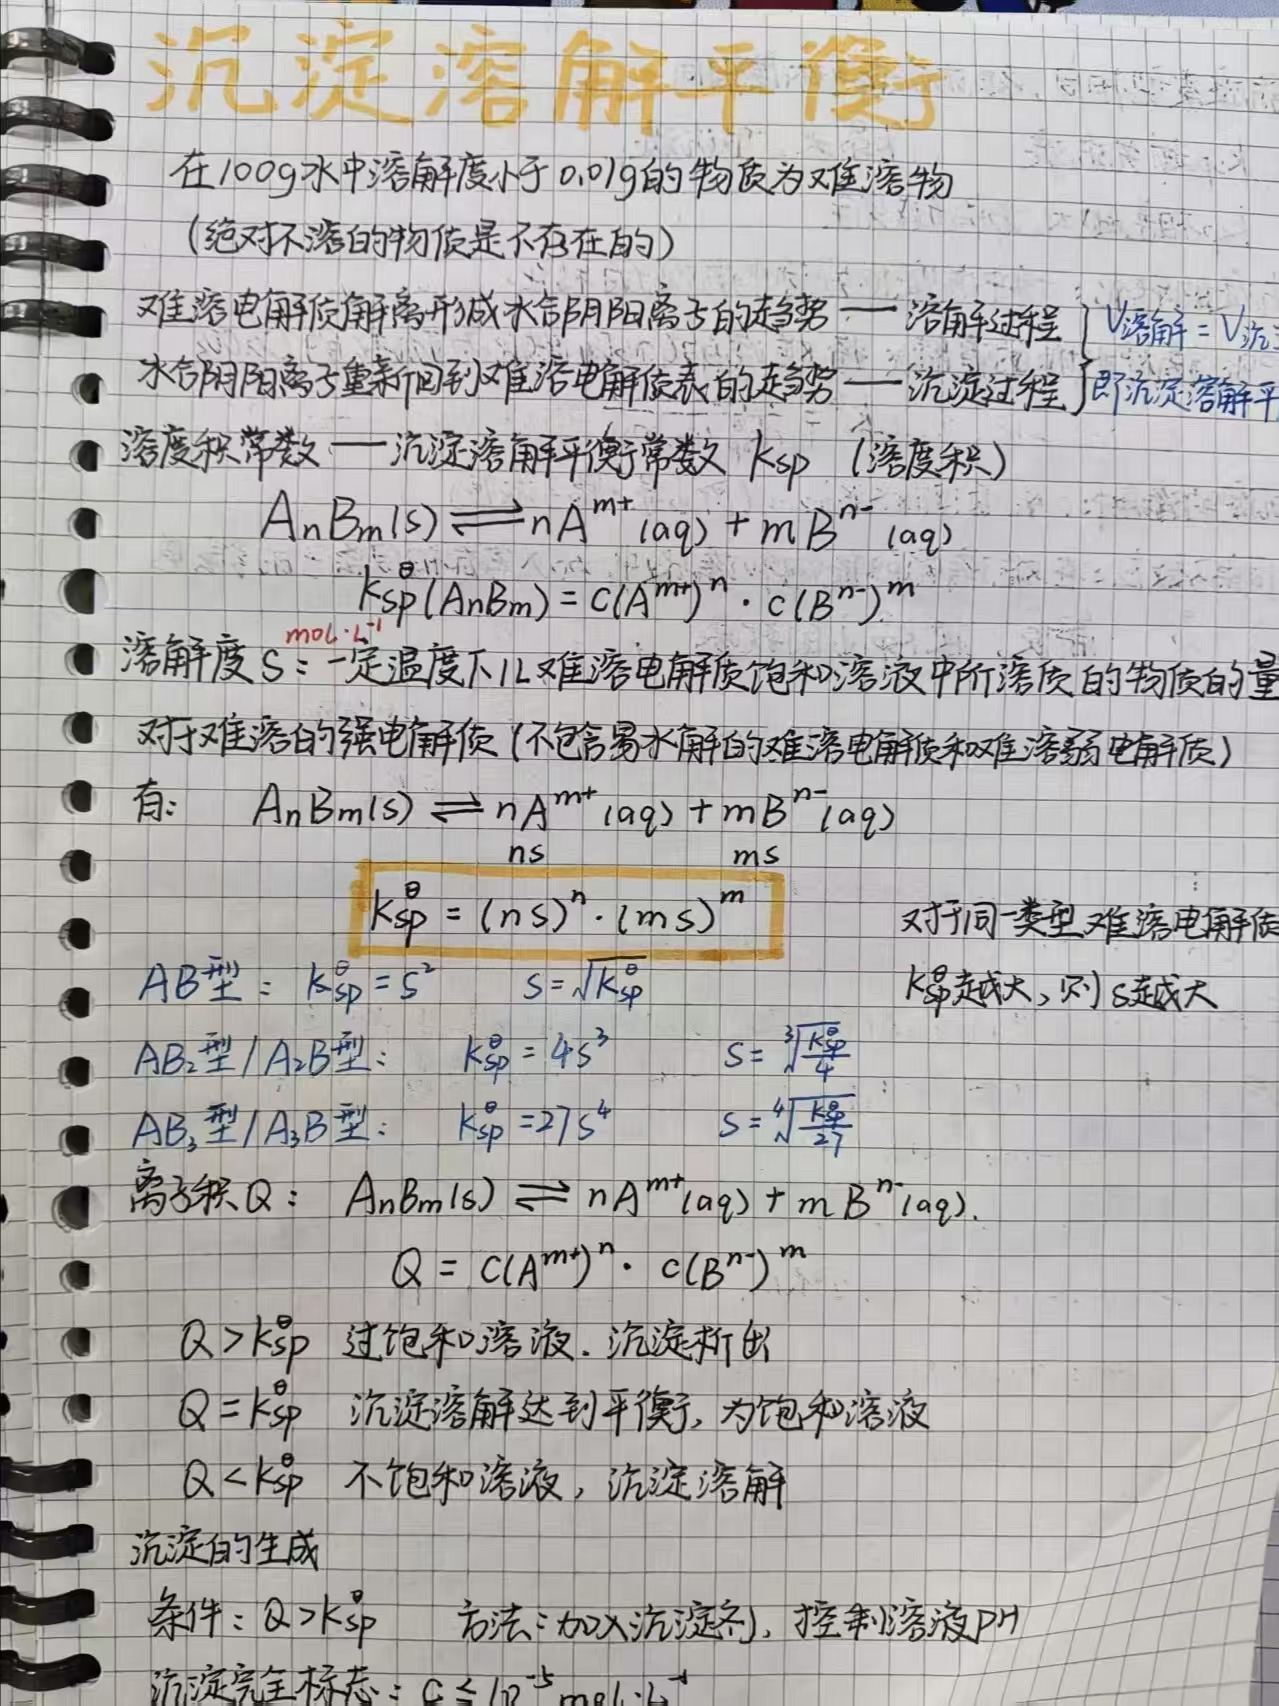 沉淀溶解平衡
在100g水中溶解度小于0.01g的物质为难溶物
(绝对不溶的物质是不存在的)
难溶电解质解离形成水合阴阳离子的趋势 — 溶解过程 } V溶解 = V沉
水合阴阳离子重新回到难溶电解质表的趋势 — 沉淀过程 } 即沉淀溶解平
溶度积常数 — 沉淀溶解平衡常数 Ksp (溶度积)
AnBm(s) ⇌ nA^m+ (aq) + mB^n- (aq)
Ksp^θ(AnBm) = c(A^m+)^n · c(B^n-)^m
mol·L^-1
溶解度 S: 一定温度下1L难溶电解质饱和溶液中所溶质的物质的量
对于难溶的强电解质(不包含易水解的难溶电解质和难溶弱电解质)
有: AnBm(s) ⇌ nA^m+ (aq) + mB^n- (aq)
ns ms
Ksp^θ = (ns)^n · (ms)^m
对于同一类型难溶电解质
Ksp^θ越大,则s越大
AB型: Ksp^θ = s^2 s = √Ksp^θ
AB₂型/A₂B型: Ksp^θ = 4s^3 s = ∛(Ksp^θ/4)
AB₃型/A₃B型: Ksp^θ = 27s^4 s = ∜(Ksp^θ/27)
离子积Q: AnBm(s) ⇌ nA^m+ (aq) + mB^n- (aq).
Q = c(A^m+)^n · c(B^n-)^m
Q > Ksp^θ 过饱和溶液. 沉淀析出
Q = Ksp^θ 沉淀溶解达到平衡, 为饱和溶液
Q < Ksp^θ 不饱和溶液, 沉淀溶解
沉淀的生成
条件: Q > Ksp^θ 方法: 加入沉淀剂, 控制溶液PH
沉淀完全标志: c ≤ 10^-5 mol·L^-1